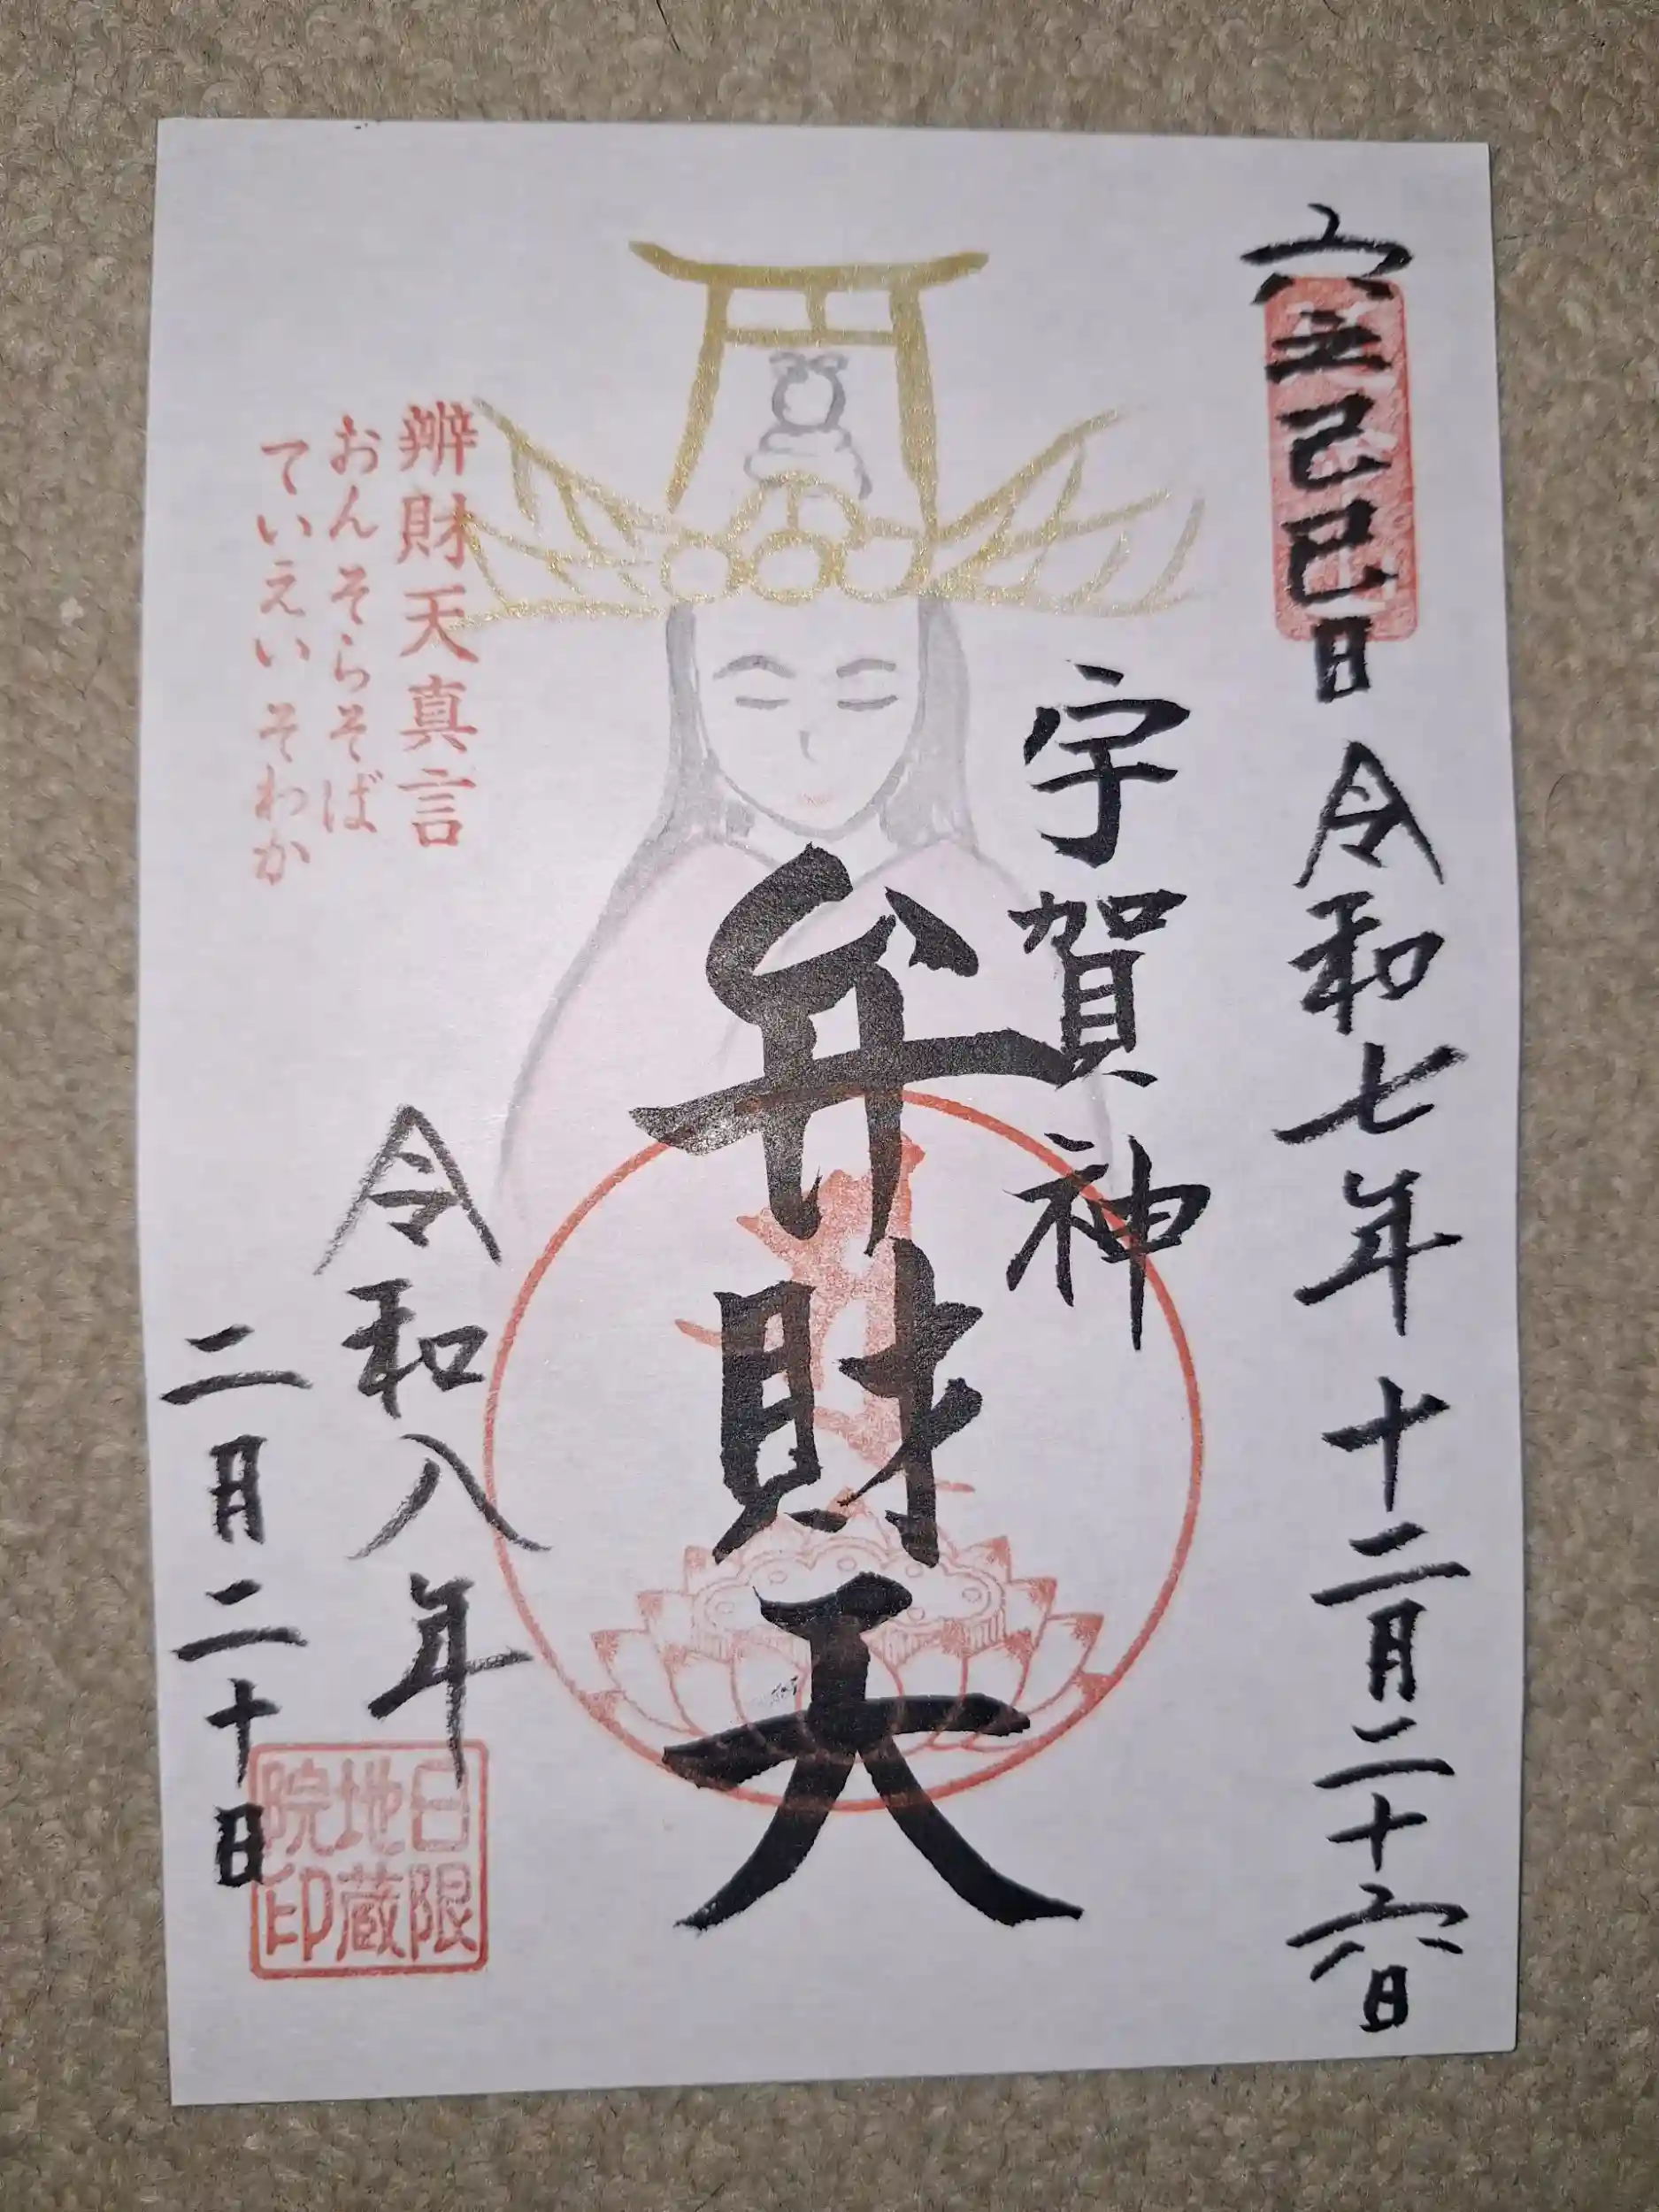 六己巳日 令和七年十二月二十六日
宇賀神
弁財天
辨財天真言
おんそらそば
ていえいそわか
令和八年
二月二十日
日限
地蔵
院印